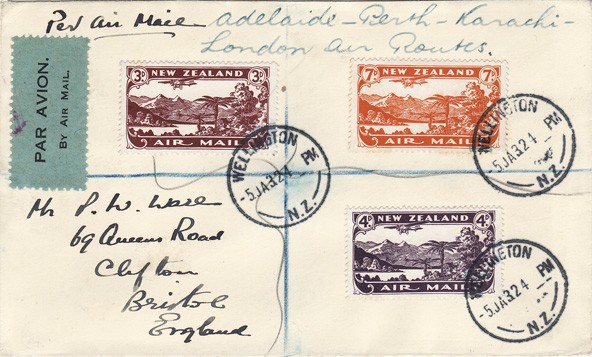 Per Air Mail
Adelaide-Perth-Karachi-
London Air Routes.
PAR AVION.
BY AIR MAIL.
3d NEW ZEALAND 3d
AIR MAIL
7d NEW ZEALAND 7d
AIR MAIL
WELLINGTON
-5JA32 4 PM
N.Z.
WELLINGTON
-5JA32 4 PM
N.Z.
4d NEW ZEALAND 4d
AIR MAIL
WELLINGTON
-5JA32 4 PM
N.Z.
Mr P. W.
69 Queens Road
Clifton
Bristol
England